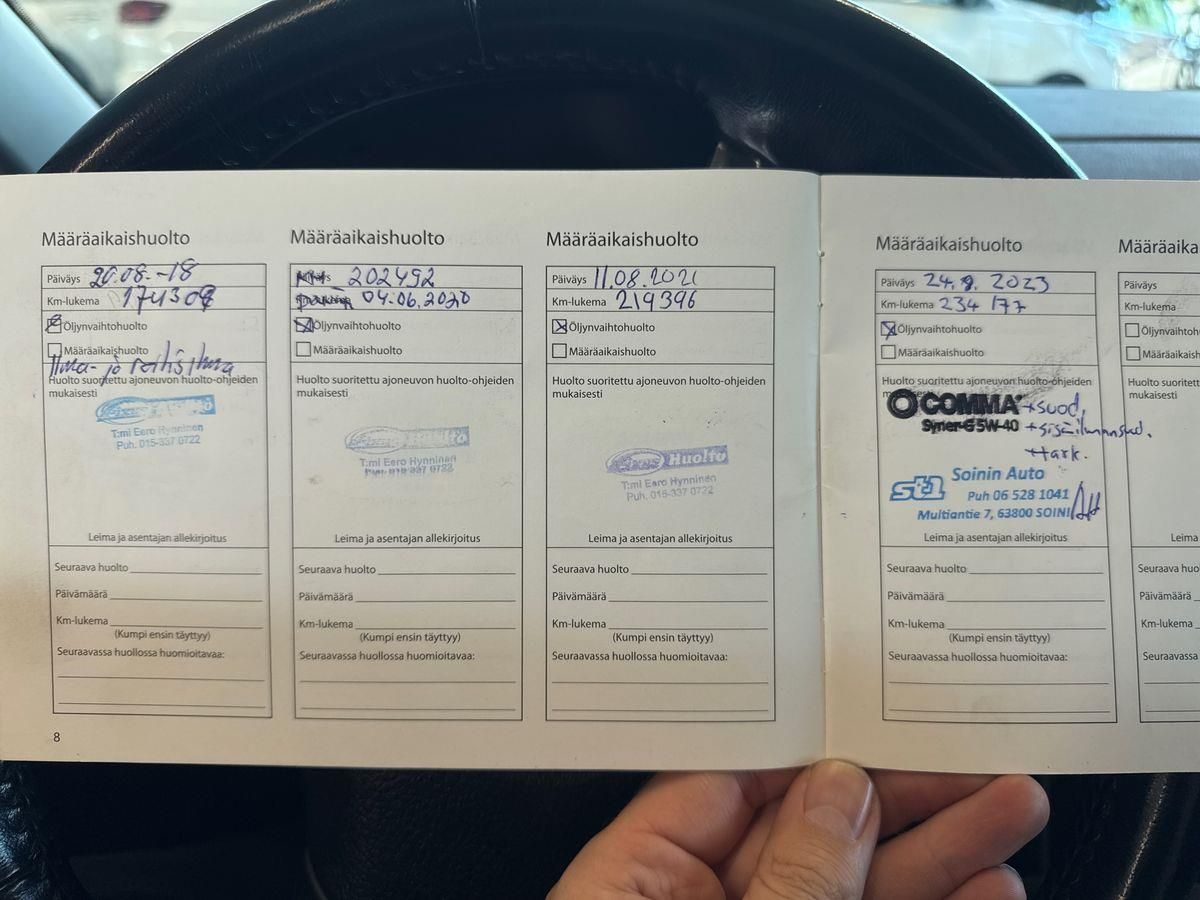 Määräaikaishuolto
Päiväys 20.08.-18
Km-lukema 174308
Öljynvaihtohuolto
Määräaikaishuolto
Ilma- ja raitisilma
Huolto suoritettu ajoneuvon huolto-ohjeiden
mukaisesti
T:mi Eero Hynninen
Puh. 015-337 0722
Leima ja asentajan allekirjoitus
Seuraava huolto
Päivämäärä
Km-lukema
(Kumpi ensin täyttyy)
Seuraavassa huollossa huomioitavaa:
8
Määräaikaishuolto
202492
04.06.2020
Öljynvaihtohuolto
Määräaikaishuolto
Huolto suoritettu ajoneuvon huolto-ohjeiden
mukaisesti
Huolto
T:mi Eero Hynninen
Puh. 015-337 0722
Leima ja asentajan allekirjoitus
Seuraava huolto
Päivämäärä
Km-lukema
(Kumpi ensin täyttyy)
Seuraavassa huollossa huomioitavaa:
Määräaikaishuolto
Päiväys 11.08.2021
Km-lukema 219396
Öljynvaihtohuolto
Määräaikaishuolto
Huolto suoritettu ajoneuvon huolto-ohjeiden
mukaisesti
Huolto
T:mi Eero Hynninen
Puh. 015-337 0722
Leima ja asentajan allekirjoitus
Seuraava huolto
Päivämäärä
Km-lukema
(Kumpi ensin täyttyy)
Seuraavassa huollossa huomioitavaa:
Määräaikaishuolto
Päiväys 24.8.2023
Km-lukema 234 177
Öljynvaihtohuolto
Määräaikaishuolto
Huolto suoritettu ajoneuvon huolto-ohjeiden
mukaisesti
COMMA +suod,
Syner-G 5W-40 +sisäilmansuod.
+tark.
st1 Soinin Auto
Puh 06 528 1041
Multiantie 7, 63800 SOINI
Leima ja asentajan allekirjoitus
Seuraava huolto
Päivämäärä
Km-lukema
(Kumpi ensin täyttyy)
Seuraavassa huollossa huomioitavaa:
Määräaika
Päiväys
Km-lukema
Öljynvaiht
Määräaikais
Huolto suorite
mukaisesti
Leima
Seuraava huo
Päivämäärä
Km-lukema
Seuraavassa